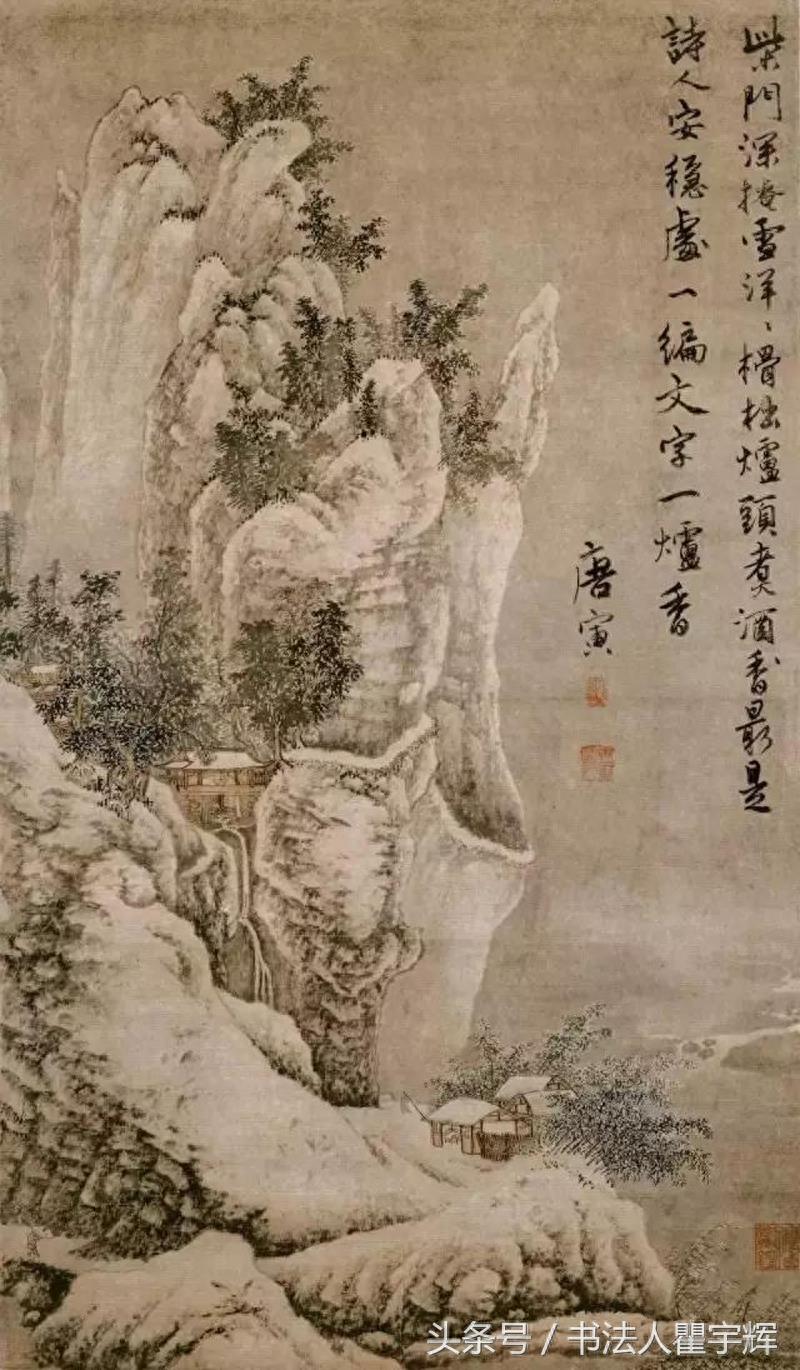 柴門深掩雪洋〻榾柮爐頭煑酒香最是
詩人安穩處一編文字一爐香
唐寅
头条号 / 书法人瞿宇辉